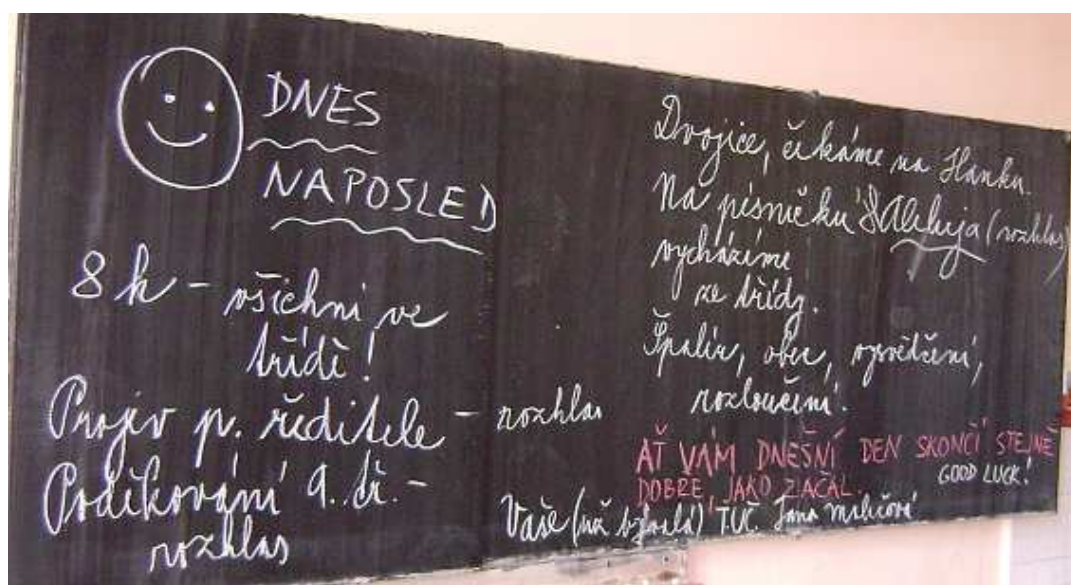 DNES
NAPOSLED
8 h - všichni ve
třídě!
Projev p. ředitele - rozhlas
Poděkování 9. tř. -
rozhlas
Dvojice, čekáme na Hanku.
Na písničku Aleluja (rozhlas)
vycházíme
ze třídy.
Špalír, obec, vysvědčení,
rozloučení.
AŤ VÁM DNEŠNÍ DEN SKONČÍ STEJNĚ
DOBŘE, JAKO ZAČAL.
GOOD LUCK!
Vaše (už bývalá) TUČ. Jana